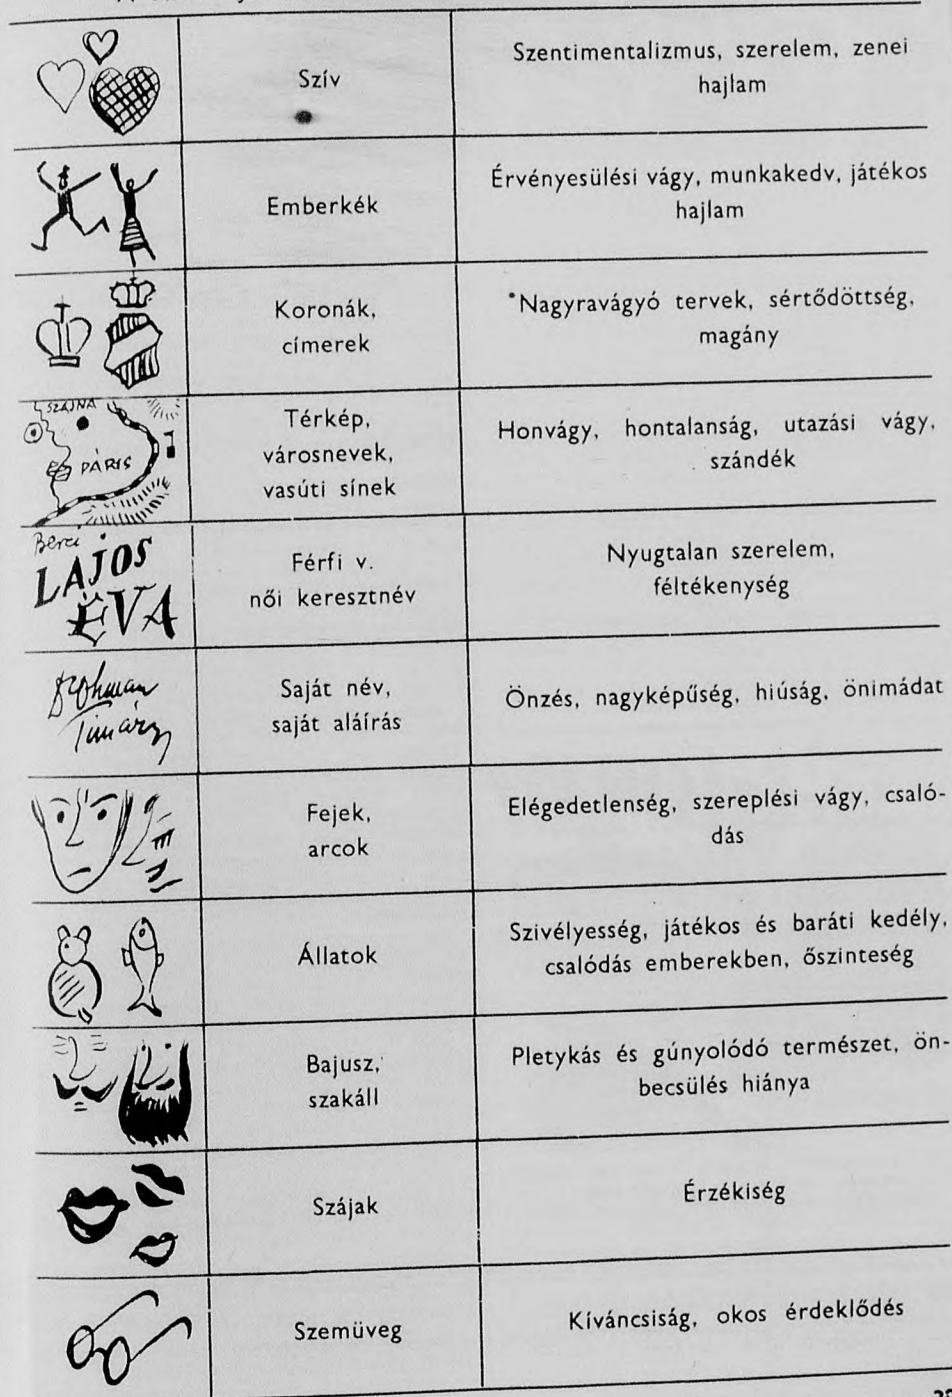 Szív
Szentimentalizmus, szerelem, zenei
hajlam
Emberkék
Érvényesülési vágy, munkakedv, játékos
hajlam
Koronák,
címerek
Nagyravágyó tervek, sértődöttség,
magány
SZAJNA
PÁRIS
Térkép,
városnevek,
vasúti sínek
Honvágy, hontalanság, utazási vágy,
szándék
Berci
LAJOS
ÉVA
Férfi v.
női keresztnév
Nyugtalan szerelem,
féltékenység
Saját név,
saját aláírás
Önzés, nagyképűség, hiúság, önimádat
Fejek,
arcok
Elégedetlenség, szereplési vágy, csaló-
dás
Állatok
Szivélyesség, játékos és baráti kedély,
csalódás emberekben, őszinteség
Bajusz,
szakáll
Pletykás és gúnyolódó természet, ön-
becsülés hiánya
Szájak
Érzékiség
Szemüveg
Kíváncsiság, okos érdeklődés